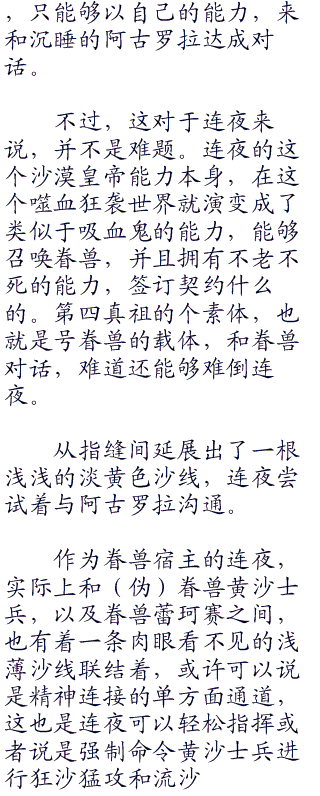 ，只能够以自己的能力，来
和沉睡的阿古罗拉达成对
话。
不过，这对于连夜来
说，并不是难题。连夜的这
个沙漠皇帝能力本身，在这
个噬血狂袭世界就演变成了
类似于吸血鬼的能力，能够
召唤眷兽，并且拥有不老不
死的能力，签订契约什么
的。第四真祖的个素体，也
就是号眷兽的载体，和眷兽
对话，难道还能够难倒连
夜。
从指缝间延展出了一根
浅浅的淡黄色沙线，连夜尝
试着与阿古罗拉沟通。
作为眷兽宿主的连夜，
实际上和（伪）眷兽黄沙士
兵，以及眷兽蕾珂赛之间，
也有着一条肉眼看不见的浅
薄沙线联结着，或许可以说
是精神连接的单方面通道，
这也是连夜可以轻松指挥或
者说是强制命令黄沙士兵进
行狂沙猛攻和流沙